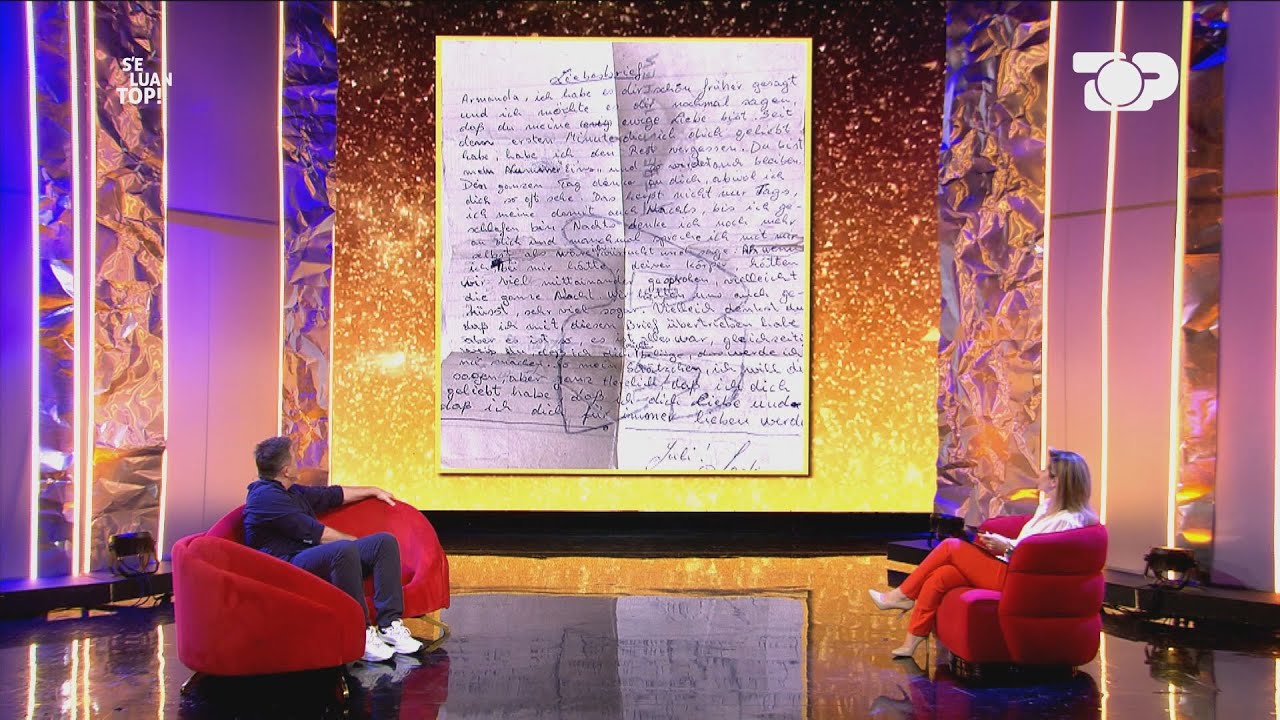 S'E
LUAN
TOP!
TOP
Liebesbrief
Armanda, ich habe es dir schön früher gesagt
und ich möchte es dir nochmal sagen,
daß du meine ewige Liebe bist. Seit
dem ersten Minute ich dich geliebt
habe, habe ich den Rest vergessen. Du bist
mein Nummer Eins und so wirdest auch bleiben.
Den ganzem Tag denke an dich, obwol ich
dich so oft sehe. Das heißt nicht nur Tags,
ich meine damit auch Nachts, bis ich ge-
schlafen bin. Nachts denke ich noch mehr
an dich und manchmal spreche ich mit mir
selbst als wäre ich und sage
ich mir hätte deiner Körper hätten
wir viel miteinander gesprochen, vielleicht
die ganze Nacht. Wir hätten uns auch ge-
küsst, sehr viel sogar. Vielleich denkst du
daß ich mit diesen Brief übertrieben habe
aber es ist so, es alles war, gleichzeiti
werde ich
mein Schätzchen, ich will di
sagen, aber ganz ehrlich, daß ich dich
geliebt habe, daß ich dich Liebe und
daß ich dich für immer lieben werde
Juli!